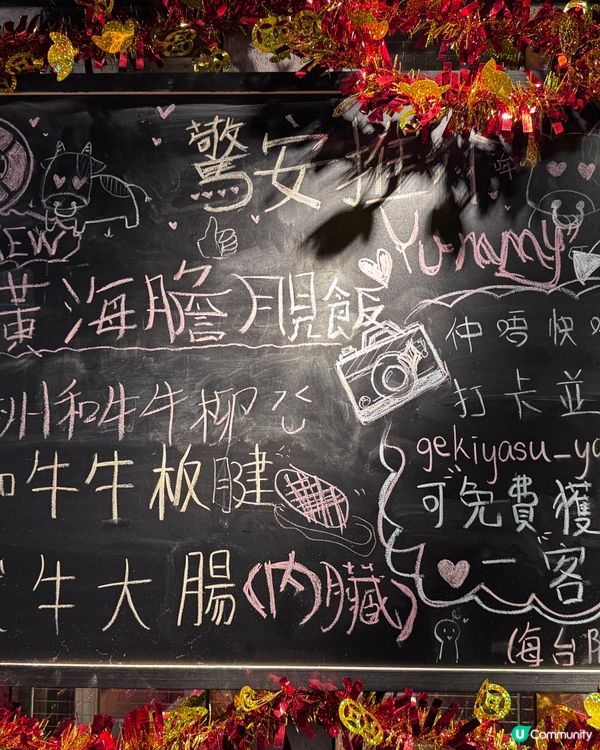 驚安推介
NEW
Yummy
黃海膽腍飯
仲唔快
打卡並
州和牛牛柳
gekiyasu_ya
和牛牛板腱
可免費獲
牛大腸(內臟)
一客
(每台
U Community